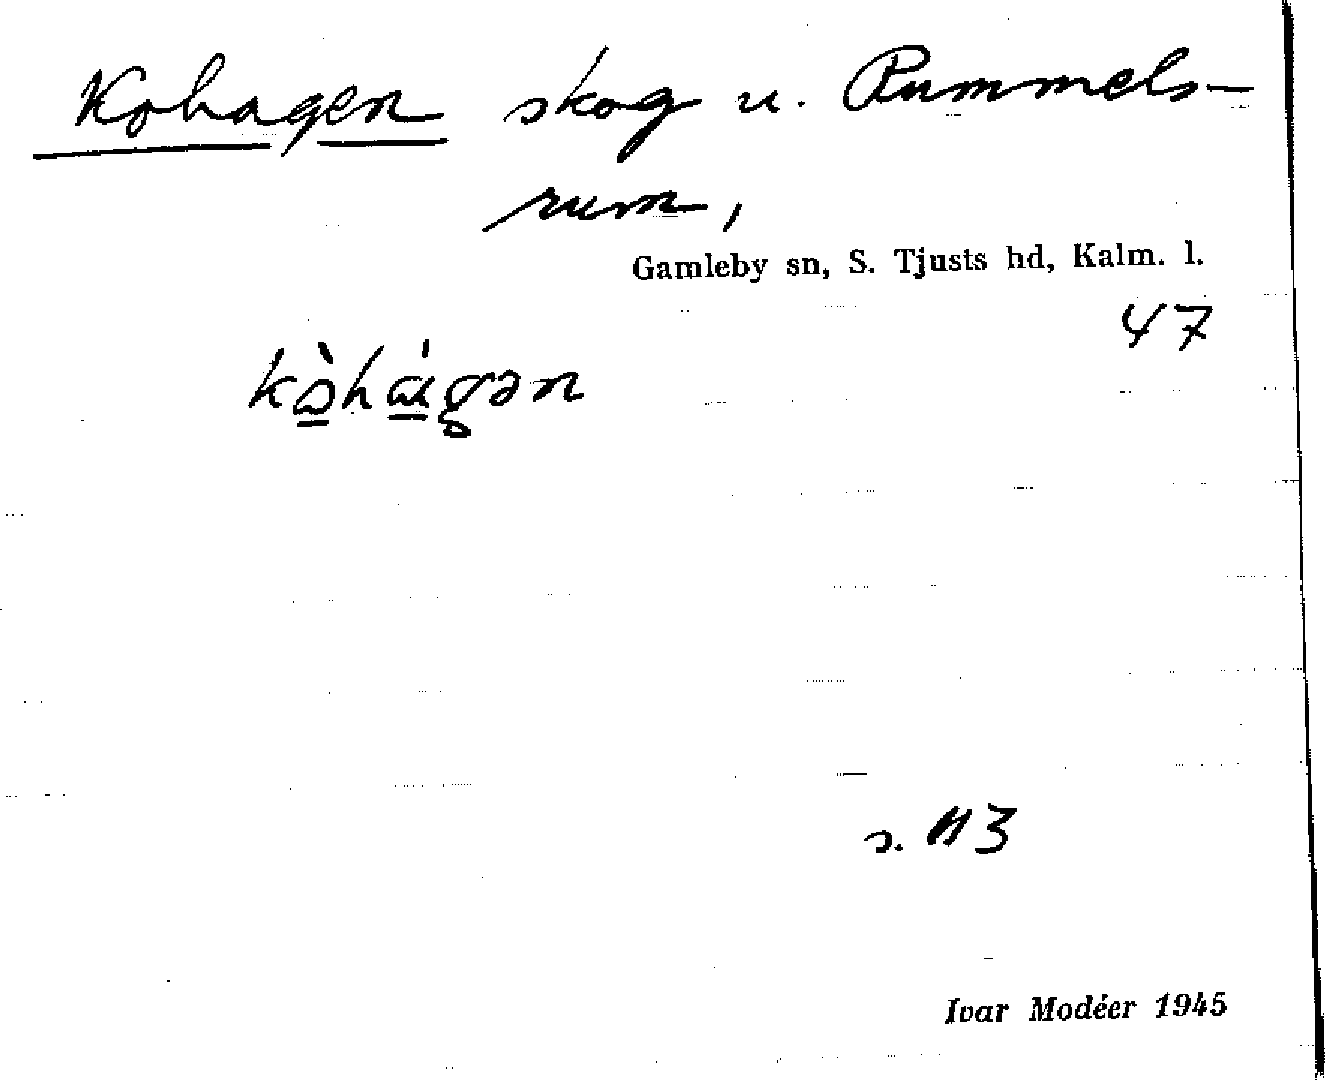 Kohagen skog u. Rummels-
rum,
Gamleby sn, S. Tjusts hd, Kalm. l.
47
s. 113
Ivar Modéer 1945